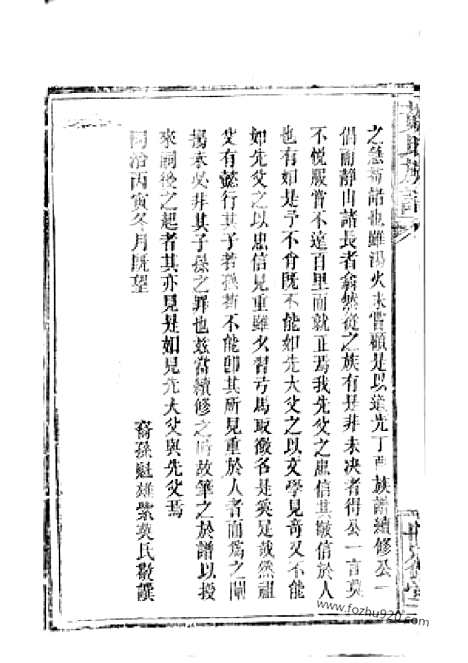 之急苟諾也雖湯火未嘗顧是以道光丁酉族譜續修公一
倡而靜山諸長者翕然從之族有是非未决者得公一言莫
不悅服嘗不遠百里而就正焉我先父之忠信其敬信於人
也有如是予不肖既不能如先大父之以文學見奇又不能
如先父之以忠信見重雖少習弓馬取微名是奚足哉然祖
父有懿行其子若孫苟不能卽其所見重於人者而爲之闡
揚未必非其子孫之罪也茲當續修之時故筆之於譜以授
來嗣後之起者其亦見是如見先大父與先父焉
同治丙寅冬月既望
裔孫魁雄紫英氏敬撰
氏族譜
堂
www.fozhu920.com